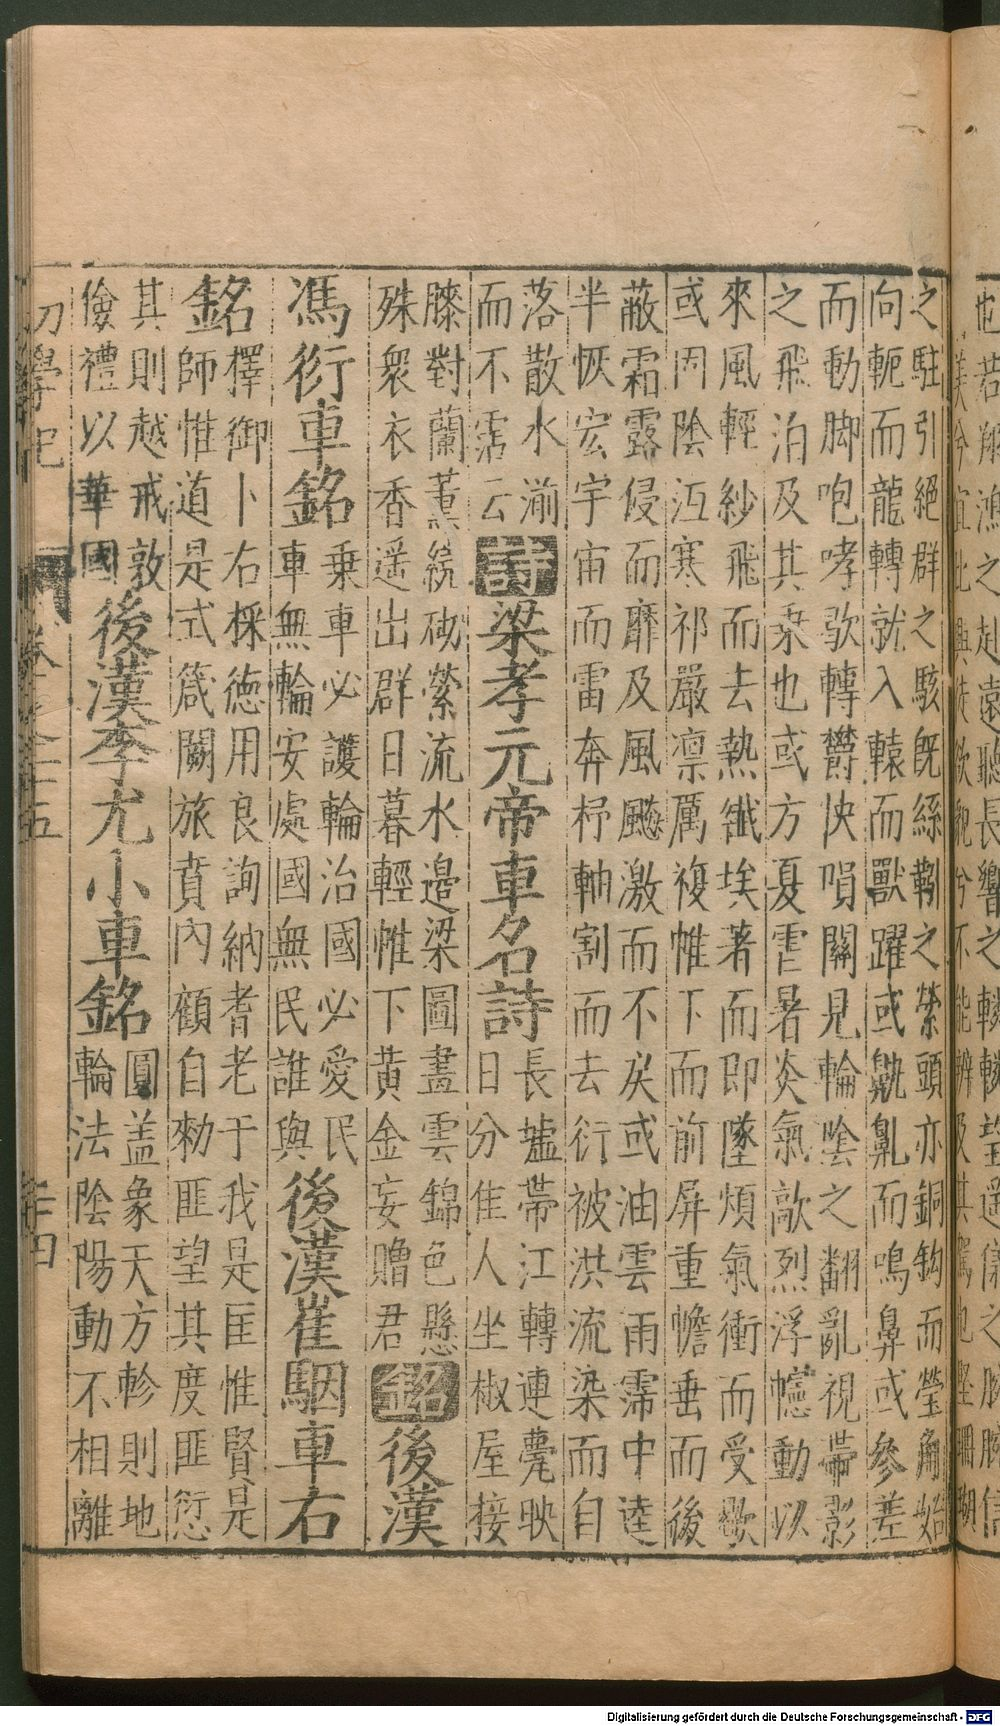 之駐引絕群之駭旣絲鞙之縈頭亦銅鈎而瑩角始
向軛而龍轉就入轅而獸躍或鼽鼽而鳴鼻或參差
而動脚咆哮歌轉欝怏唄關見輪陰之翻亂視帶影
之飛泊及其乗也或方夏雹暑炎氣歊烈浮幰動以
來風輕紗飛而去熱纎埃著而即墜煩氣衝而受歇
或周陰沍寒祁嚴凛厲複帷下而前屏重幨垂而後
蔽霜露侵而靡及風飈激而不疾或油雲雨霈中逵
半恢宏宇宙而雷奔杼軸割而去衍被洪流染而自
落散水湔
而不霑云
詩梁孝元帝車名詩
長墟帶江轉連甍映
日分隹人坐椒屋接
膝對蘭薫繞砌縈流水邉梁圖畫雲錦色懸
殊衆衣香遥出群日暮輕帷下黄金妄贈君
銘後漢
馮衍車銘
乗車必護輪治國必愛民
車無輪安處國無民誰與
後漢崔駰車右
銘
擇御卜右採徳用良詢納耆老于我是匡惟賢是
師惟道是式箴闕旅賁內顧自勑匪望其度匪愆
其則越戒敦
儉禮以華國
後漢李尤小車銘
圓盖象天方軫則地
輪法陰陽動不相離
初學記 卷之二十五 三十四